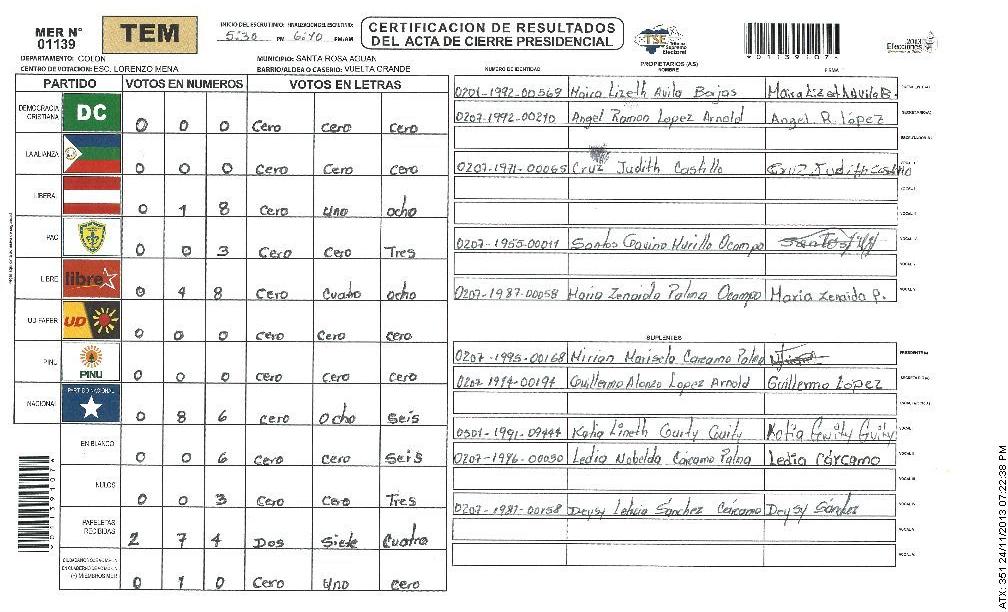 MER N° 01139
TEM
INICIO DEL ESCRUTINIO: FINALIZACION DEL ESCRUTINIO:
5:30 PM 6:10 PM/AM
CERTIFICACION DE RESULTADOS
DEL ACTA DE CIERRE PRESIDENCIAL
TSE
Tribunal Supremo Electoral
2013
Elecciones
DEPARTAMENTO: COLON
MUNICIPIO: SANTA ROSA AGUAN
CENTRO DE VOTACION: ESC. LORENZO MENA
BARRIO/ALDEA O CASERIO: VUELTA GRANDE
NUMERO DE IDENTIDAD
PROPIETARIOS (AS)
NOMBRE
FIRMA
PARTIDO VOTOS EN NUMEROS VOTOS EN LETRAS
DEMOCRACIA CRISTIANA DC 0 0 0 Cero cero cero
LA ALIANZA 0 0 0 Cero Cero cero
LIBERAL 0 1 8 Cero uno ocho
PAC 0 0 3 Cero Cero Tres
LIBRE libre 0 4 8 Cero Cuatro ocho
UD FAPER UD 0 0 0 cero cero cero
PINU PINU 0 0 0 cero cero cero
NACIONAL PARTIDO NACIONAL 0 8 6 cero Ocho seis
EN BLANCO 0 0 6 cero cero seis
NULOS 0 0 3 Cero Cero Tres
PAPELETAS RECIBIDAS 2 7 4 Dos Siete Cuatro
(+) MIEMBROS MER 0 1 0 Cero Uno cero
0201-1992-00569 Maira Lizeth Avila Bajas Maira Lizeth Avila B.
0207-1992-00210 Angel Ramon Lopez Arnold Angel R. López
0207-1971-00065 Cruz Judith Castillo Cruz Judith Castillo
0207-1955-00011 Santos Gavino Murillo Ocampo
0207-1987-00058 Maria Zenaida Palma Ocampo Maria Zenaida P.
SUPLENTES
0207-1995-00168 Mirian Marisela Carcamo Palma
0207-1974-00197 Guillermo Alonzo Lopez Arnold Guillermo López
0301-1991-09444 Katia Lineth Guity Guity Katia Guity Guity
0207-1996-00050 Ledia Nobelda Carcamo Palma Ledia Cárcamo
0207-1987-00158 Deysy Leticia Sánchez Cárcamo Deysy Sánchez
ATX: 351 24/11/2013 07:22:38 PM